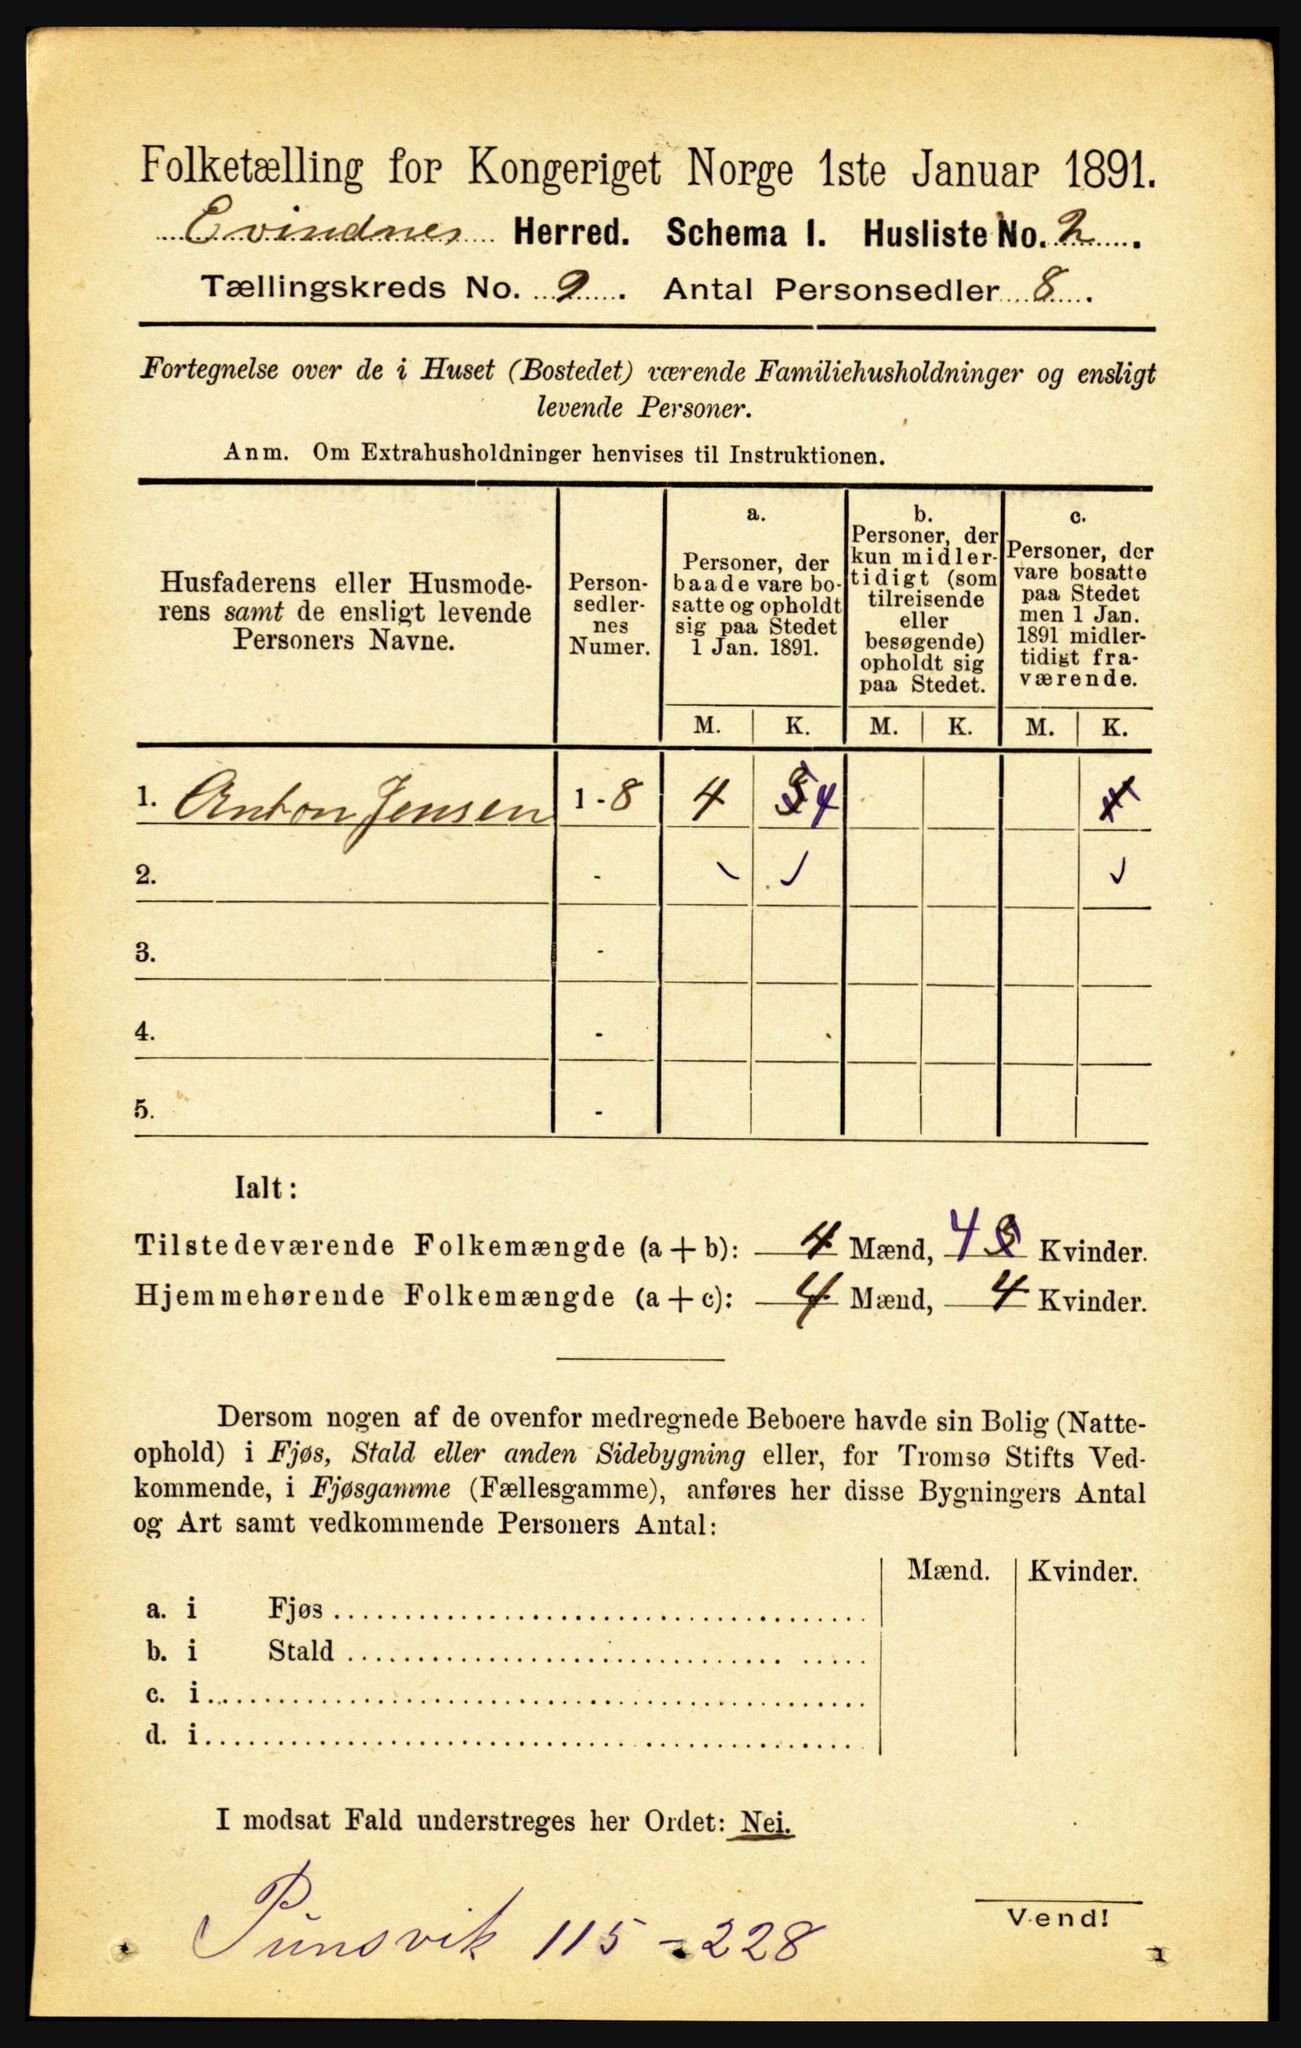 Folketælling for Kongeriget Norge 1ste Januar 1891.
Evindnes Herred. Schema I. Husliste No. 2.
Tællingskreds No. 9. Antal Personsedler 8.
Fortegnelse over de i Huset (Bostedet) værende Familiehusholdninger og ensligt
levende Personer.
Anm. Om Extrahusholdninger henvises til Instruktionen.
Husfaderens eller Husmode-
rens samt de ensligt levende
Personers Navne.
Person-
sedler-
nes
Numer.
a.
Personer, der
baade vare bo-
satte og opholdt
sig paa Stedet
1 Jan. 1891.
b.
Personer, der
kun midler-
tidigt (som
tilreisende
eller
besøgende)
opholdt sig
paa Stedet.
c.
Personer, der
vare bosatte
paa Stedet
men 1 Jan.
1891 midler-
tidigt fra-
værende.
M. K. M. K. M. K.
1. Anton Jensen 1 - 8 4 3 4 1
2. -
3. -
4. -
5. -
Ialt:
Tilstedeværende Folkemængde (a + b): 4 Mænd, 4 3 Kvinder.
Hjemmehørende Folkemængde (a + c): 4 Mænd, 4 Kvinder.
Dersom nogen af de ovenfor medregnede Beboere havde sin Bolig (Natte-
ophold) i Fjøs, Stald eller anden Sidebygning eller, for Tromsø Stifts Ved-
kommende, i Fjøsgamme (Fællesgamme), anføres her disse Bygningers Antal
og Art samt vedkommende Personers Antal:
Mænd. Kvinder.
a. i Fjøs
b. i Stald
c. i
d. i
I modsat Fald understreges her Ordet: Nei.
Vend!
Pünsvik 115 - 228
1